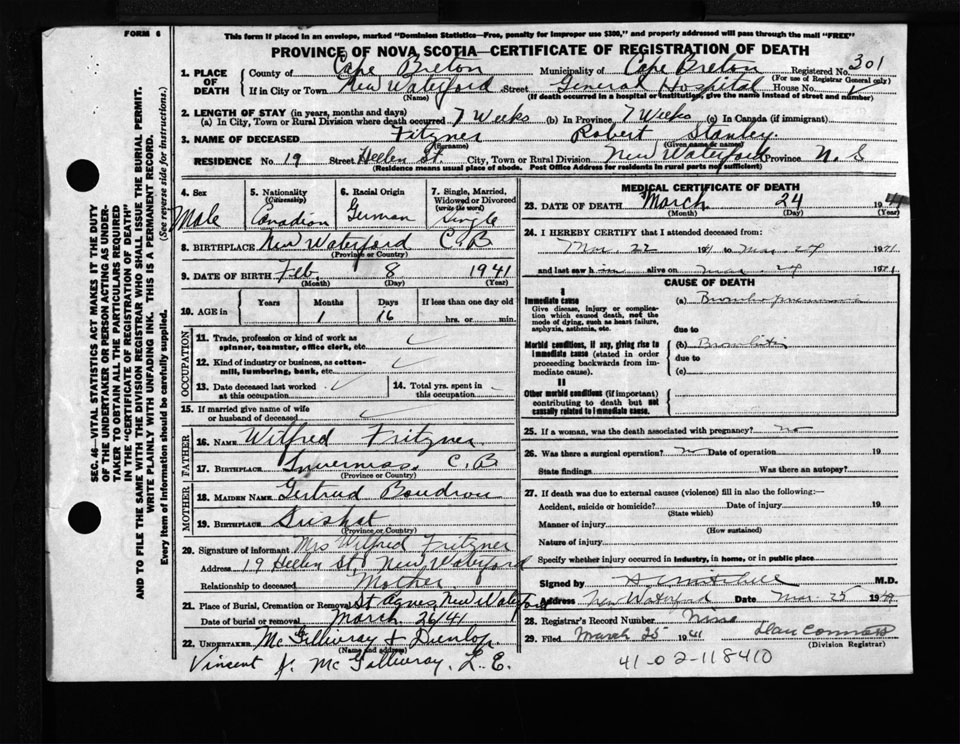 FORM 6
This form if placed in an envelope, marked "Dominion Statistics—Free, penalty for improper use $300," and properly addressed will pass through the mail "FREE"
PROVINCE OF NOVA SCOTIA—CERTIFICATE OF REGISTRATION OF DEATH
1. PLACE OF DEATH
County of Cape Breton Municipality of Cape Breton Registered No. 301
(For use of Registrar General only)
If in City or Town New Waterford Street General Hospital House No.
(Name) (If death occurred in a hospital or institution, give the name instead of street and number)
2. LENGTH OF STAY (in years, months and days)
(a) In City, Town or Rural Division where death occurred 7 Weeks (b) In Province 7 Weeks (c) In Canada (if immigrant)
3. NAME OF DECEASED Fitzner Robert Stanley.
(Surname) (Given name or names)
RESIDENCE No. 19 Street Hellen St. City, Town or Rural Division New Waterford Province N. S
(Residence means usual place of abode. Post Office Address for residents in rural parts not sufficient)
SEC. 46—VITAL STATISTICS ACT MAKES IT THE DUTY
OF THE UNDERTAKER OR PERSON ACTING AS UNDERTAKER TO OBTAIN ALL THE PARTICULARS REQUIRED
IN THE "CERTIFICATE OF REGISTRATION OF DEATH"
AND TO FILE THE SAME WITH THE DIVISION REGISTRAR WHO SHALL ISSUE THE BURIAL PERMIT.
WRITE PLAINLY WITH UNFADING INK. THIS IS A PERMANENT RECORD.
Every item of information should be carefully supplied. (See reverse side for instructions.)
4. Sex
Male
5. Nationality
(Citizenship)
Canadian
6. Racial Origin
German
7. Single, Married,
Widowed or Divorced
(write the word)
Single
8. BIRTHPLACE New Waterford C.B
(Province or Country)
9. DATE OF BIRTH Feb, 8 1941
(Month) (Day) (Year)
10. AGE in
Years Months Days If less than one day old
1 16 hrs. or min.
OCCUPATION
11. Trade, profession or kind of work as
spinner, teamster, office clerk, etc.
12. Kind of industry or business, as cotton-
mill, lumbering, bank, etc.
13. Date deceased last worked
at this occupation
14. Total yrs. spent in
this occupation
15. If married give name of wife
or husband of deceased
FATHER
16. NAME Wilfred Fritzner
17. BIRTHPLACE Inverness, C.B
(Province or Country)
MOTHER
18. MAIDEN NAME Gertrud Boudrou
19. BIRTHPLACE
(Province or Country)
20. Signature of informant Mrs Wilfred Fritzner
Address 19 Hellen St. New Waterford
Relationship to deceased Mother
21. Place of Burial, Cremation or Removal St Agnes New Waterford
Date of burial or removal March 26/41
22. UNDERTAKER McGillivray & Dunlop.
(Name and address)
Vincent J. McGillivray, L.E.
MEDICAL CERTIFICATE OF DEATH
23. DATE OF DEATH March 24 1941
(Month) (Day) (Year)
24. I HEREBY CERTIFY that I attended deceased from:
Mar. 22 1941 to Mar. 24 1941
and last saw him alive on Mar. 24 1941
CAUSE OF DEATH
I
Immediate cause
Give disease, injury or complication which caused death, not the
mode of dying, such as heart failure,
asphyxia, asthenia, etc.
(a) Bronchopneumonia
due to
Morbid conditions, if any, giving rise to
immediate cause (stated in order
proceeding backwards from immediate cause).
(b) Bronchitis
due to
(c)
II
Other morbid conditions (if important)
contributing to death but not
causally related to immediate cause.
25. If a woman, was the death associated with pregnancy? no
26. Was there a surgical operation? no Date of operation 19
State findings Was there an autopsy?
27. If death was due to external causes (violence) fill in also the following:—
Accident, suicide or homicide? Date of injury 19
(State which)
Manner of injury
(How sustained)
Nature of injury
Specify whether injury occurred in industry, in home, or in public place
Signed by M.D.
Address New Waterford Date Mar. 25 1941
28. Registrar's Record Number
29. Filed March 25 1941
(Division Registrar)
41-02-118410